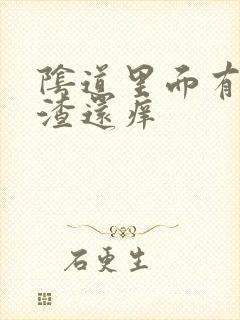 陰道里而有
渣還痒
石更生